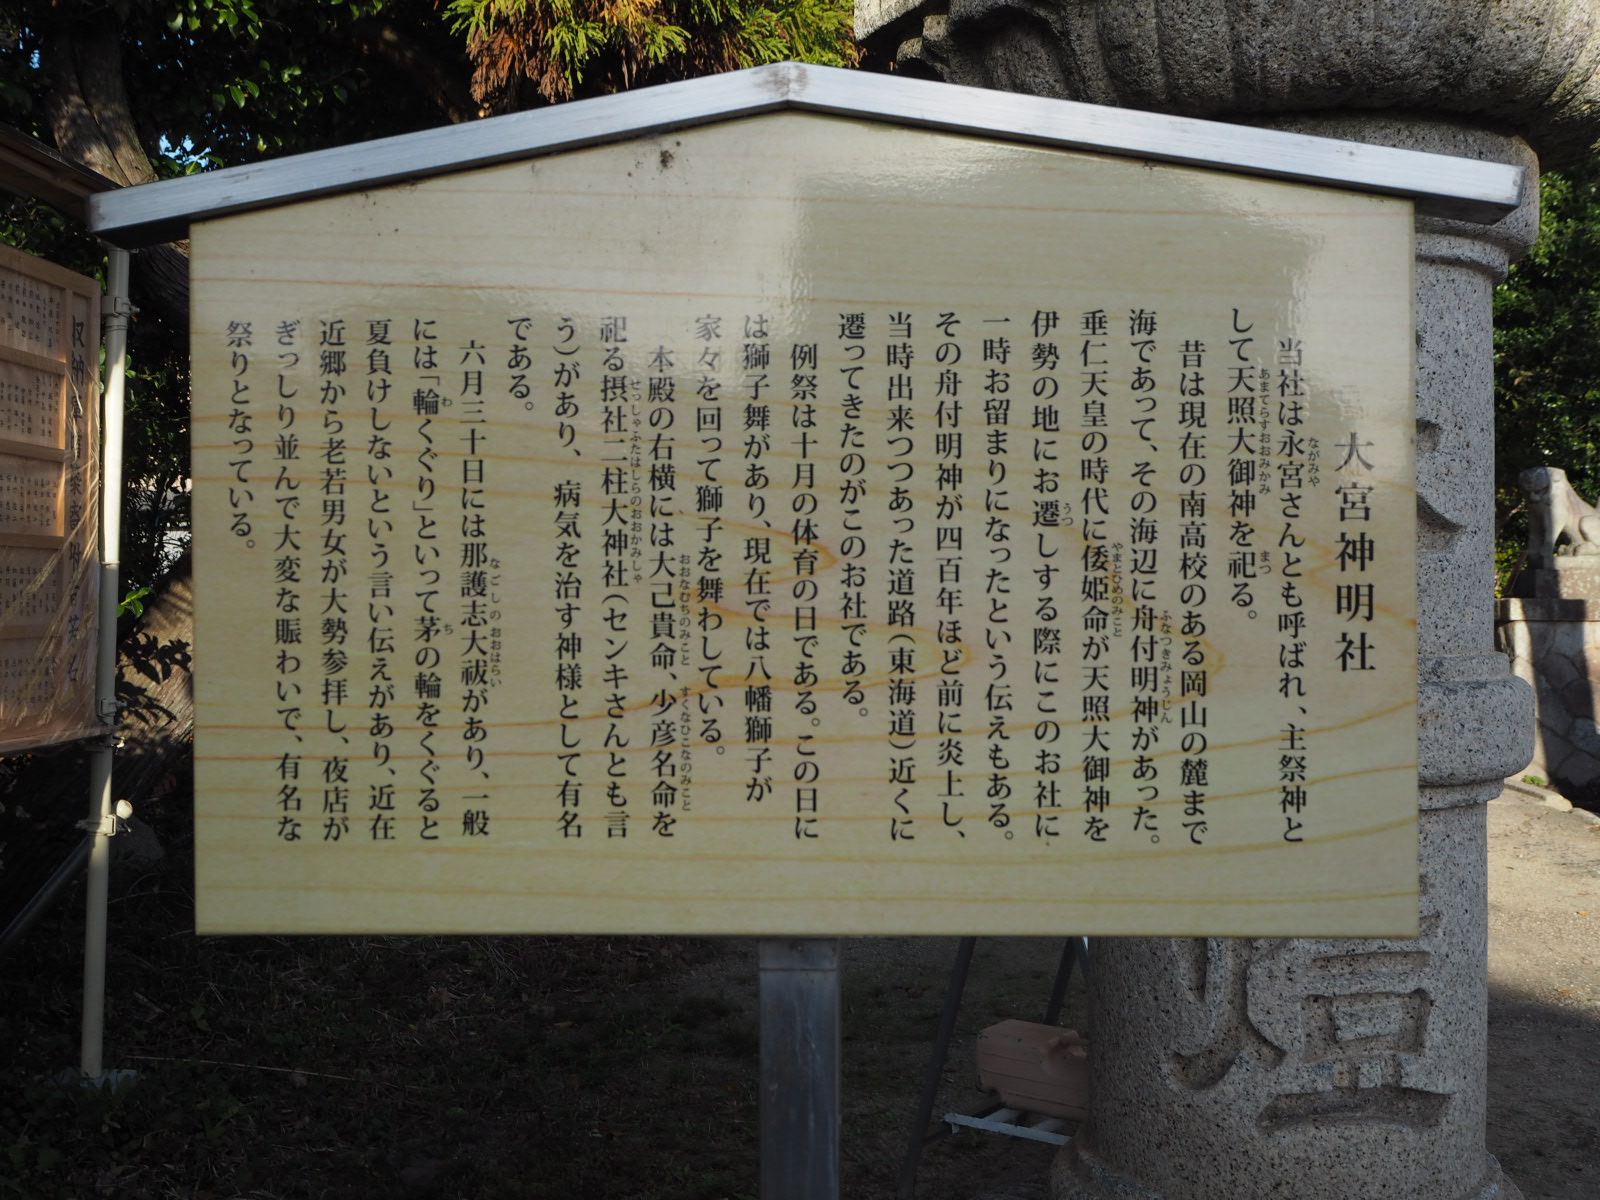 大宮神明社
当社は永宮さんとも呼ばれ、主祭神と
ながみや
して天照大御神を祀る。
あまてらすおおみかみ
まつ
昔は現在の南高校のある岡山の麓まで
海であって、その海辺に舟付明神があった。
ふなつきみょうじん
垂仁天皇の時代に倭姫命が天照大御神を
やまとひめのみこと
伊勢の地にお遷しする際にこのお社に
うつ
一時お留まりになったという伝えもある。
その舟付明神が四百年ほど前に炎上し、
当時出来つつあった道路(東海道)近くに
遷ってきたのがこのお社である。
例祭は十月の体育の日である。この日に
は獅子舞があり、現在では八幡獅子が
家々を回って獅子を舞わしている。
本殿の右横には大己貴命、少彦名命を
おおなむちのみこと
すくなひこなのみこと
祀る摂社二柱大神社(センキさんとも言
せっしゃふたはしらのおおかみしゃ
う)があり、病気を治す神様として有名
である。
六月三十日には那護志大祓があり、一般
なごしのおおはらい
には「輪くぐり」といって茅の輪をくぐると
わ
ち
夏負けしないという言い伝えがあり、近在
近郷から老若男女が大勢参拝し、夜店が
ぎっしり並んで大変な賑わいで、有名な
祭りとなっている。